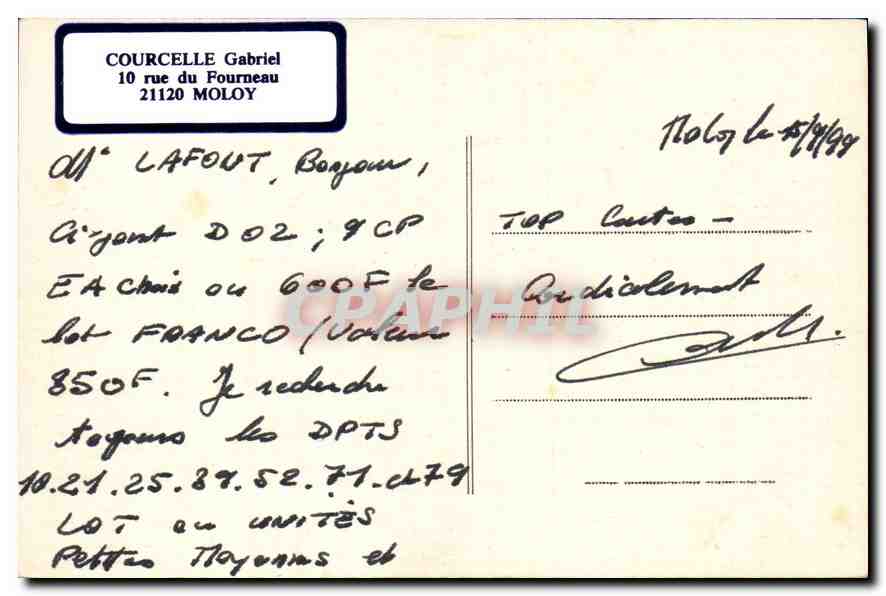 COURCELLE Gabriel
10 rue du Fourneau
21120 MOLOY
Moloy le 15/9/99
Mr LAFONT, Bonjour,
Ci-joint D 02 ; 9 CP
EA choix ou 600F le
lot FRANCO / Valeur
850F. Je recherche
toujours les DPTS
10.21.25.39.52.71.et 79
LOT ou UNITÉS
Petites Moyennes et
TOP Cartes -
Cordialement
CPAPHIL